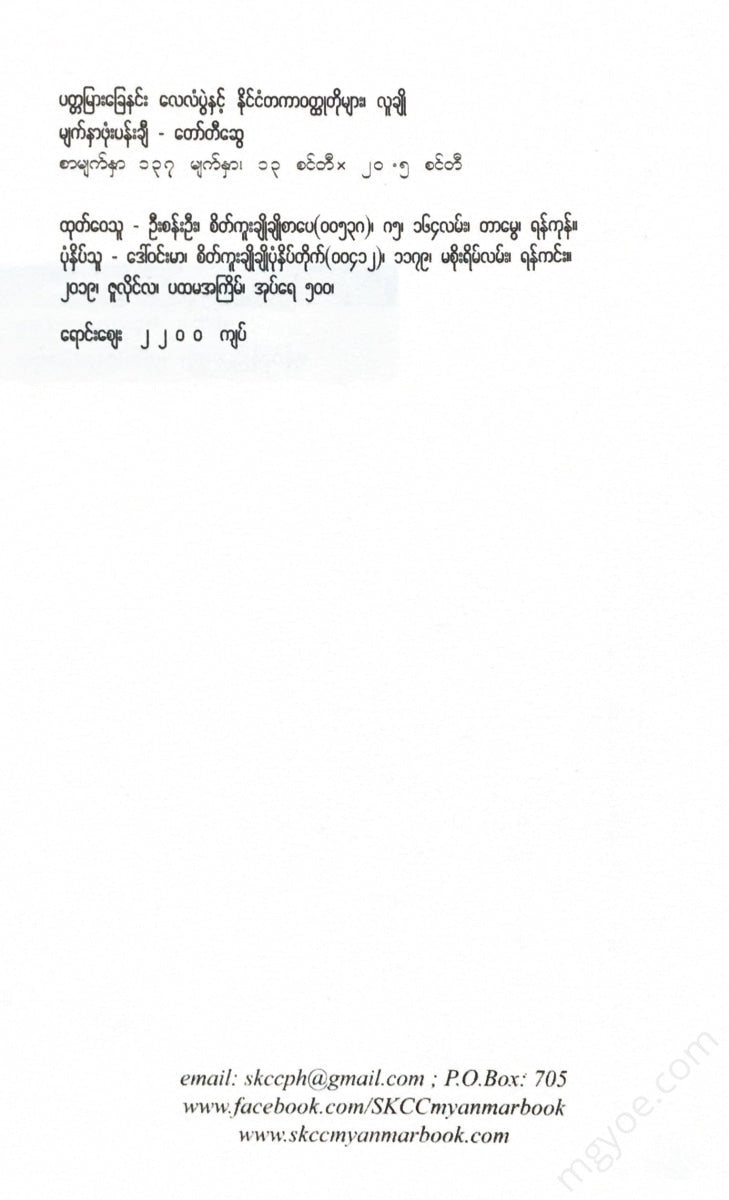 ပတ္တမြားခြေနင်း လေလံပွဲနှင့် နိုင်ငံတကာဝတ္ထုတိုများ၊ လူချို
မျက်နှာဖုံးပန်းချီ - တော်တီဆွေ
စာမျက်နှာ ၁၃၇ မျက်နှာ၊ ၁၃ စင်တီ× ၂၀.၅ စင်တီ
ထုတ်ဝေသူ - ဦးစန်းဦး၊ စိတ်ကူးချိုချိုစာပေ(၀၀၅၃၈)၊ ၈၅၊ ၁၆၄လမ်း၊ တာမွေ၊ ရန်ကုန်။
ပုံနှိပ်သူ - ဒေါ်ဝင်းမာ၊ စိတ်ကူးချိုချိုပုံနှိပ်တိုက်(၀၀၄၁၂)၊ ၁၁၇၉၊ မစိုးရိမ်လမ်း၊ ရန်ကင်း။
၂၀၁၉၊ ဇူလိုင်လ၊ ပထမအကြိမ်၊ အုပ်ရေ ၅၀၀၊
ရောင်းဈေး ၂၂၀၀ ကျပ်
email: skccph@gmail.com ; P.O.Box: 705
www.facebook.com/SKCCmyanmarbook
www.skccmyanmarbook.com
mgyoe.com